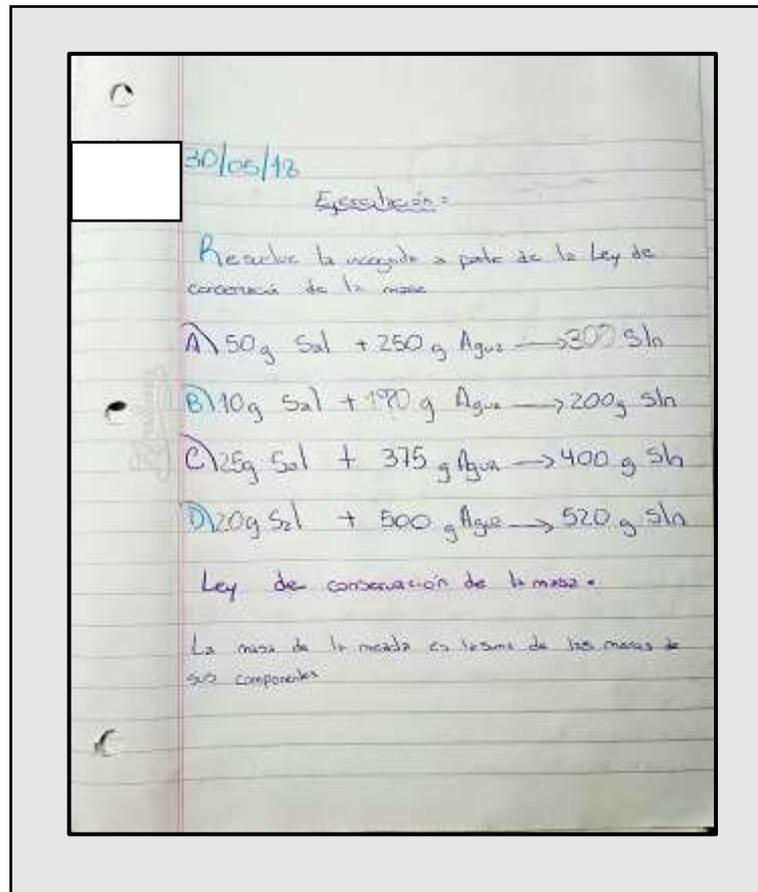 30/05/18
Ejercitación:
Resolve la incognita a partir de la Ley de
de la masa
A) 50g Sal + 250 g Agua → 300 Sln
B) 10g Sal + 190 g Agua → 200g Sln
C) 25g Sal + 375 g Agua → 400 g Sln
D) 20g Sal + 500 g Agua → 520 g Sln
Ley de conservación de la masa.
La masa de la mezcla es la suma de las masas de
sus componentes